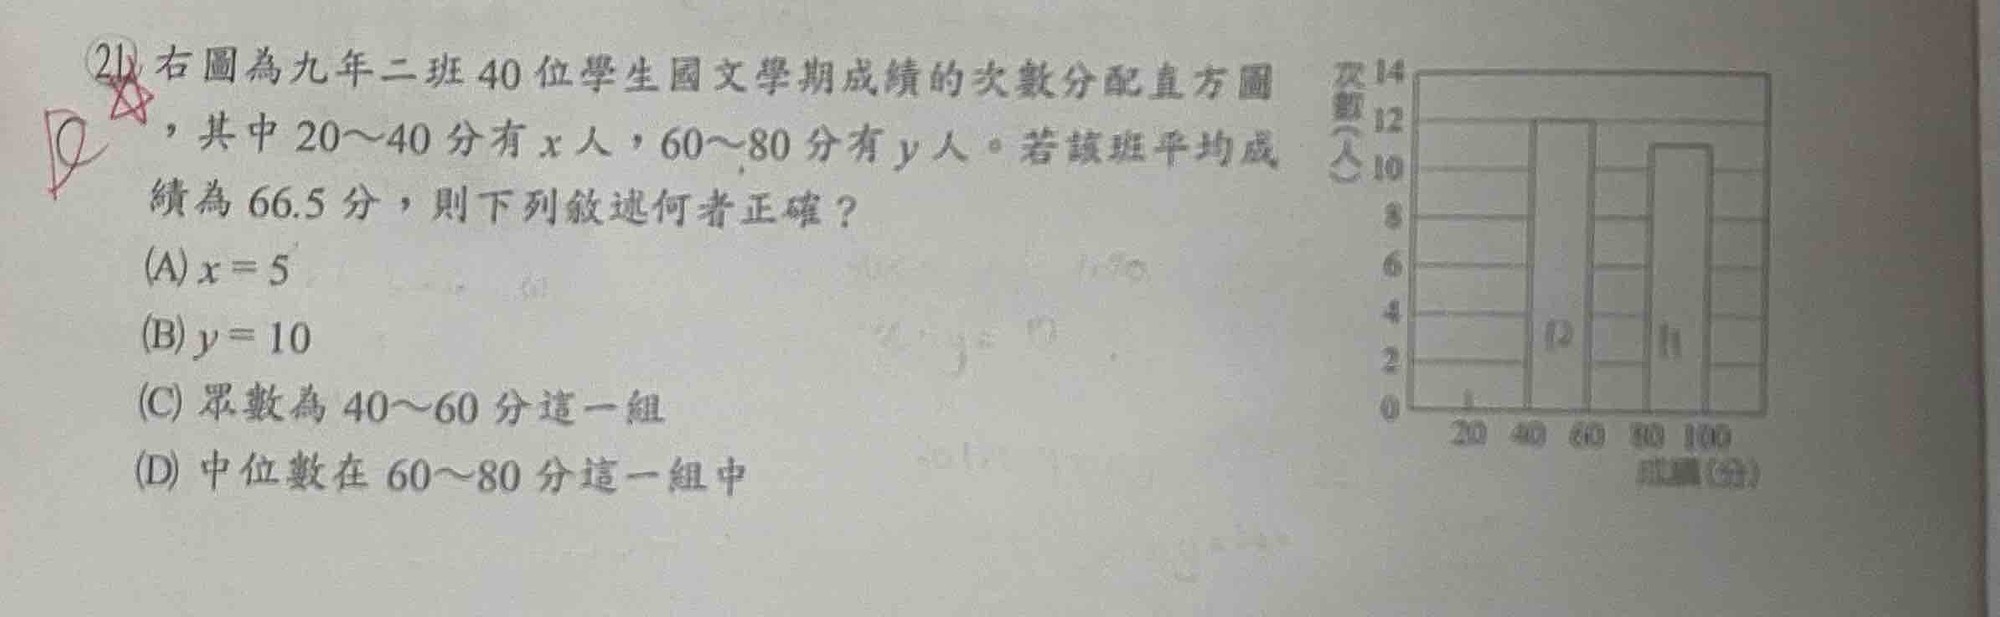 21. 右圖為九年二班 40 位學生國文學期成績的次數分配直方圖
，其中 20～40 分有 x 人，60～80 分有 y 人。若該班平均成
績為 66.5 分，則下列敘述何者正確？
(A) x = 5
(B) y = 10
(C) 眾數為 40～60 分這一組
(D) 中位數在 60～80 分這一組中
D
次數(人)
14
12
10
8
6
4
2
0
12
11
20 40 60 80 100
成績(分)